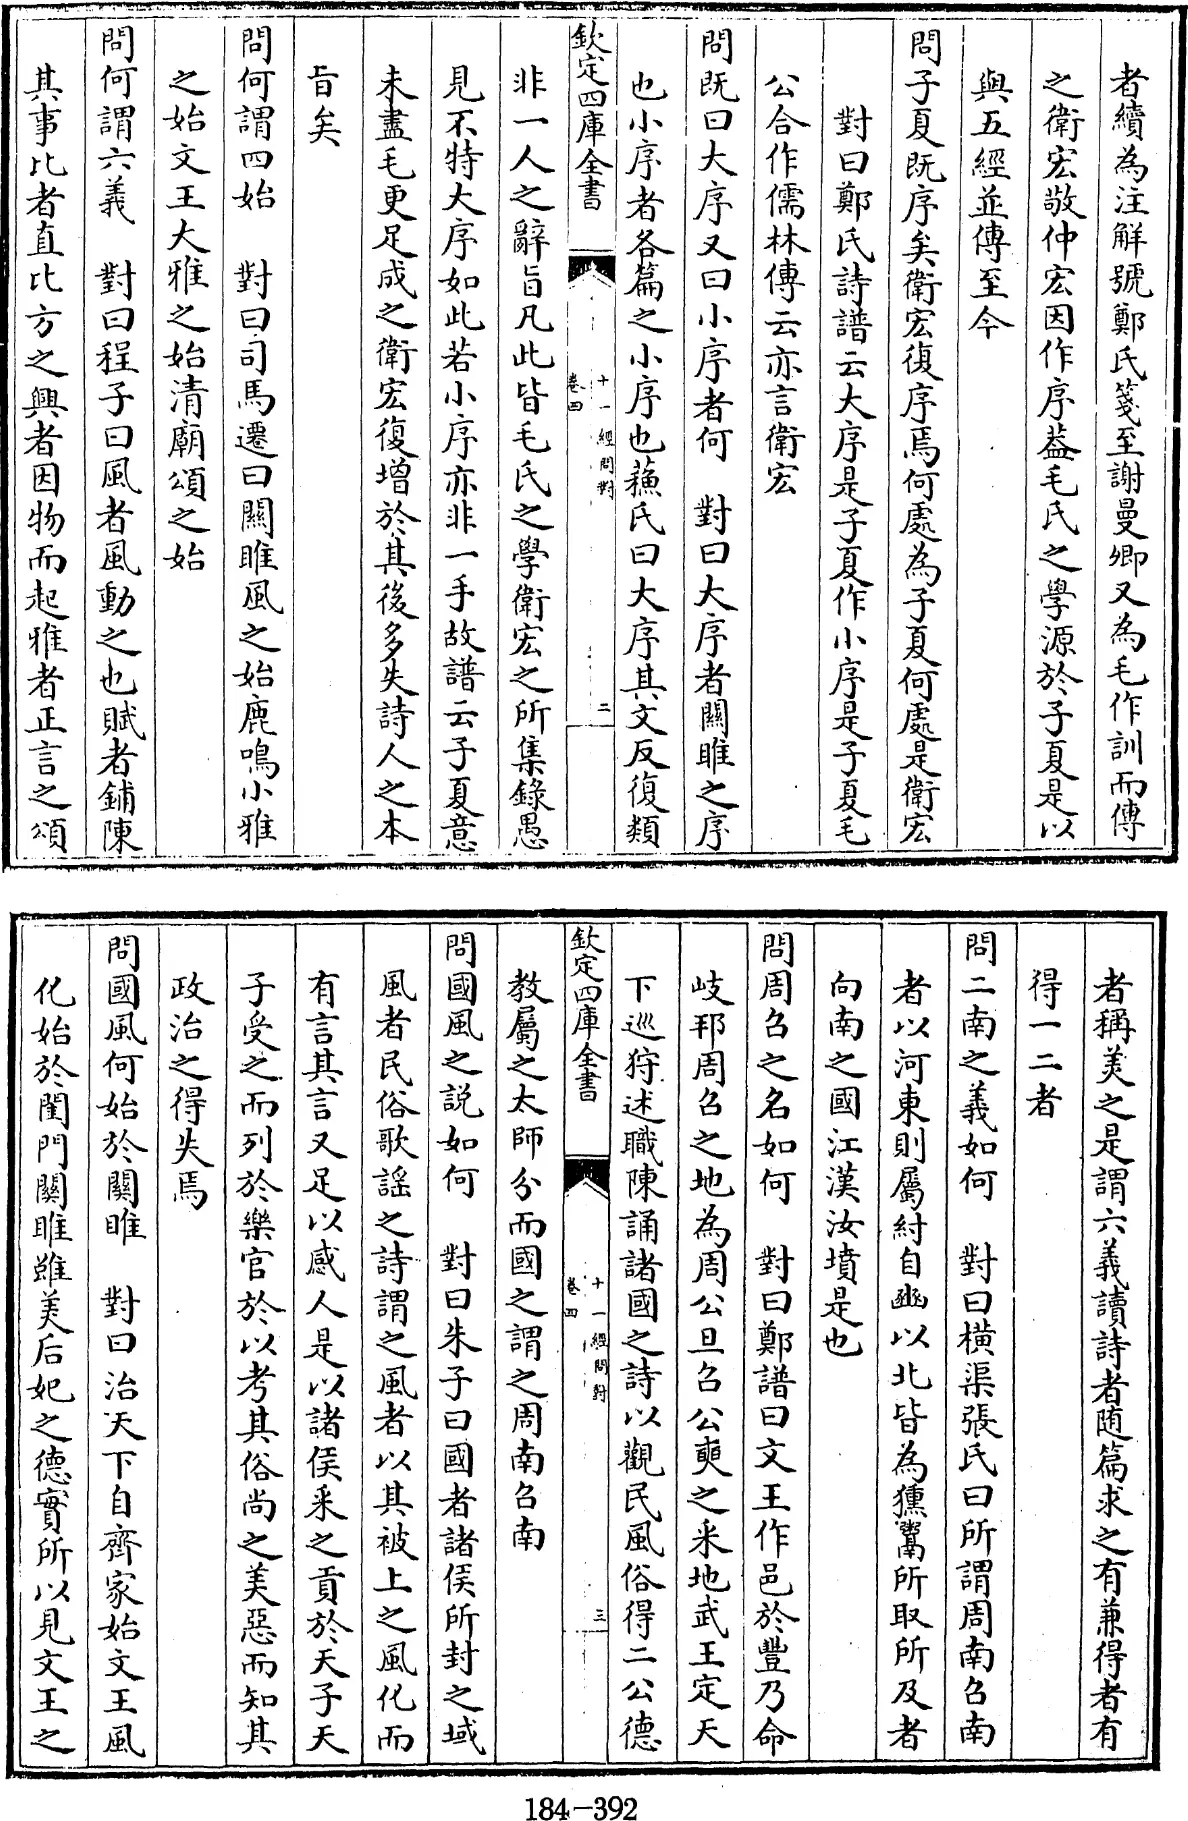 者續為注解號鄭氏箋至謝曼卿又為毛作訓而傳
之衛宏敬仲宏因作序葢毛氏之學源於子夏是以
與五經並傳至今
問子夏既序矣衛宏復序焉何處為子夏何處是衛宏
對曰鄭氏詩譜云大序是子夏作小序是子夏毛
公合作儒林傳云亦言衛宏
問既曰大序又曰小序者何　對曰大序者關雎之序
也小序者各篇之小序也蘓氏曰大序其文反復類
欽定四庫全書　十一經問對　卷四　二
非一人之辭旨凡此皆毛氏之學衛宏之所集錄愚
見不特大序如此若小序亦非一手故譜云子夏意
未盡毛更足成之衛宏復增於其後多失詩人之本
旨矣
問何謂四始　對曰司馬遷曰關雎風之始鹿鳴小雅
之始文王大雅之始清廟頌之始
問何謂六義　對曰程子曰風者風動之也賦者鋪陳
其事比者直比方之興者因物而起雅者正言之頌
者稱美之是謂六義讀詩者随篇求之有兼得者有
得一二者
問二南之義如何　對曰橫渠張氏曰所謂周南召南
者以河東則屬紂自豳以北皆為獯鬻所取所及者
向南之國江漢汝墳是也
問周召之名如何　對曰鄭譜曰文王作邑於豐乃命
岐邦周召之地為周公旦召公奭之采地武王定天
下巡狩述職陳誦諸國之詩以觀民風俗得二公德
欽定四庫全書　十一經問對　卷四　三
教屬之太師分而國之謂之周南召南
問國風之説如何　對曰朱子曰國者諸侯所封之域
風者民俗歌謡之詩謂之風者以其被上之風化而
有言其言又足以感人是以諸侯采之貢於天子天
子受之而列於樂官於以考其俗尚之美惡而知其
政治之得失焉
問國風何始於關雎　對曰治天下自齊家始文王風
化始於閨門關雎雖美后妃之德實所以見文王之
184-392